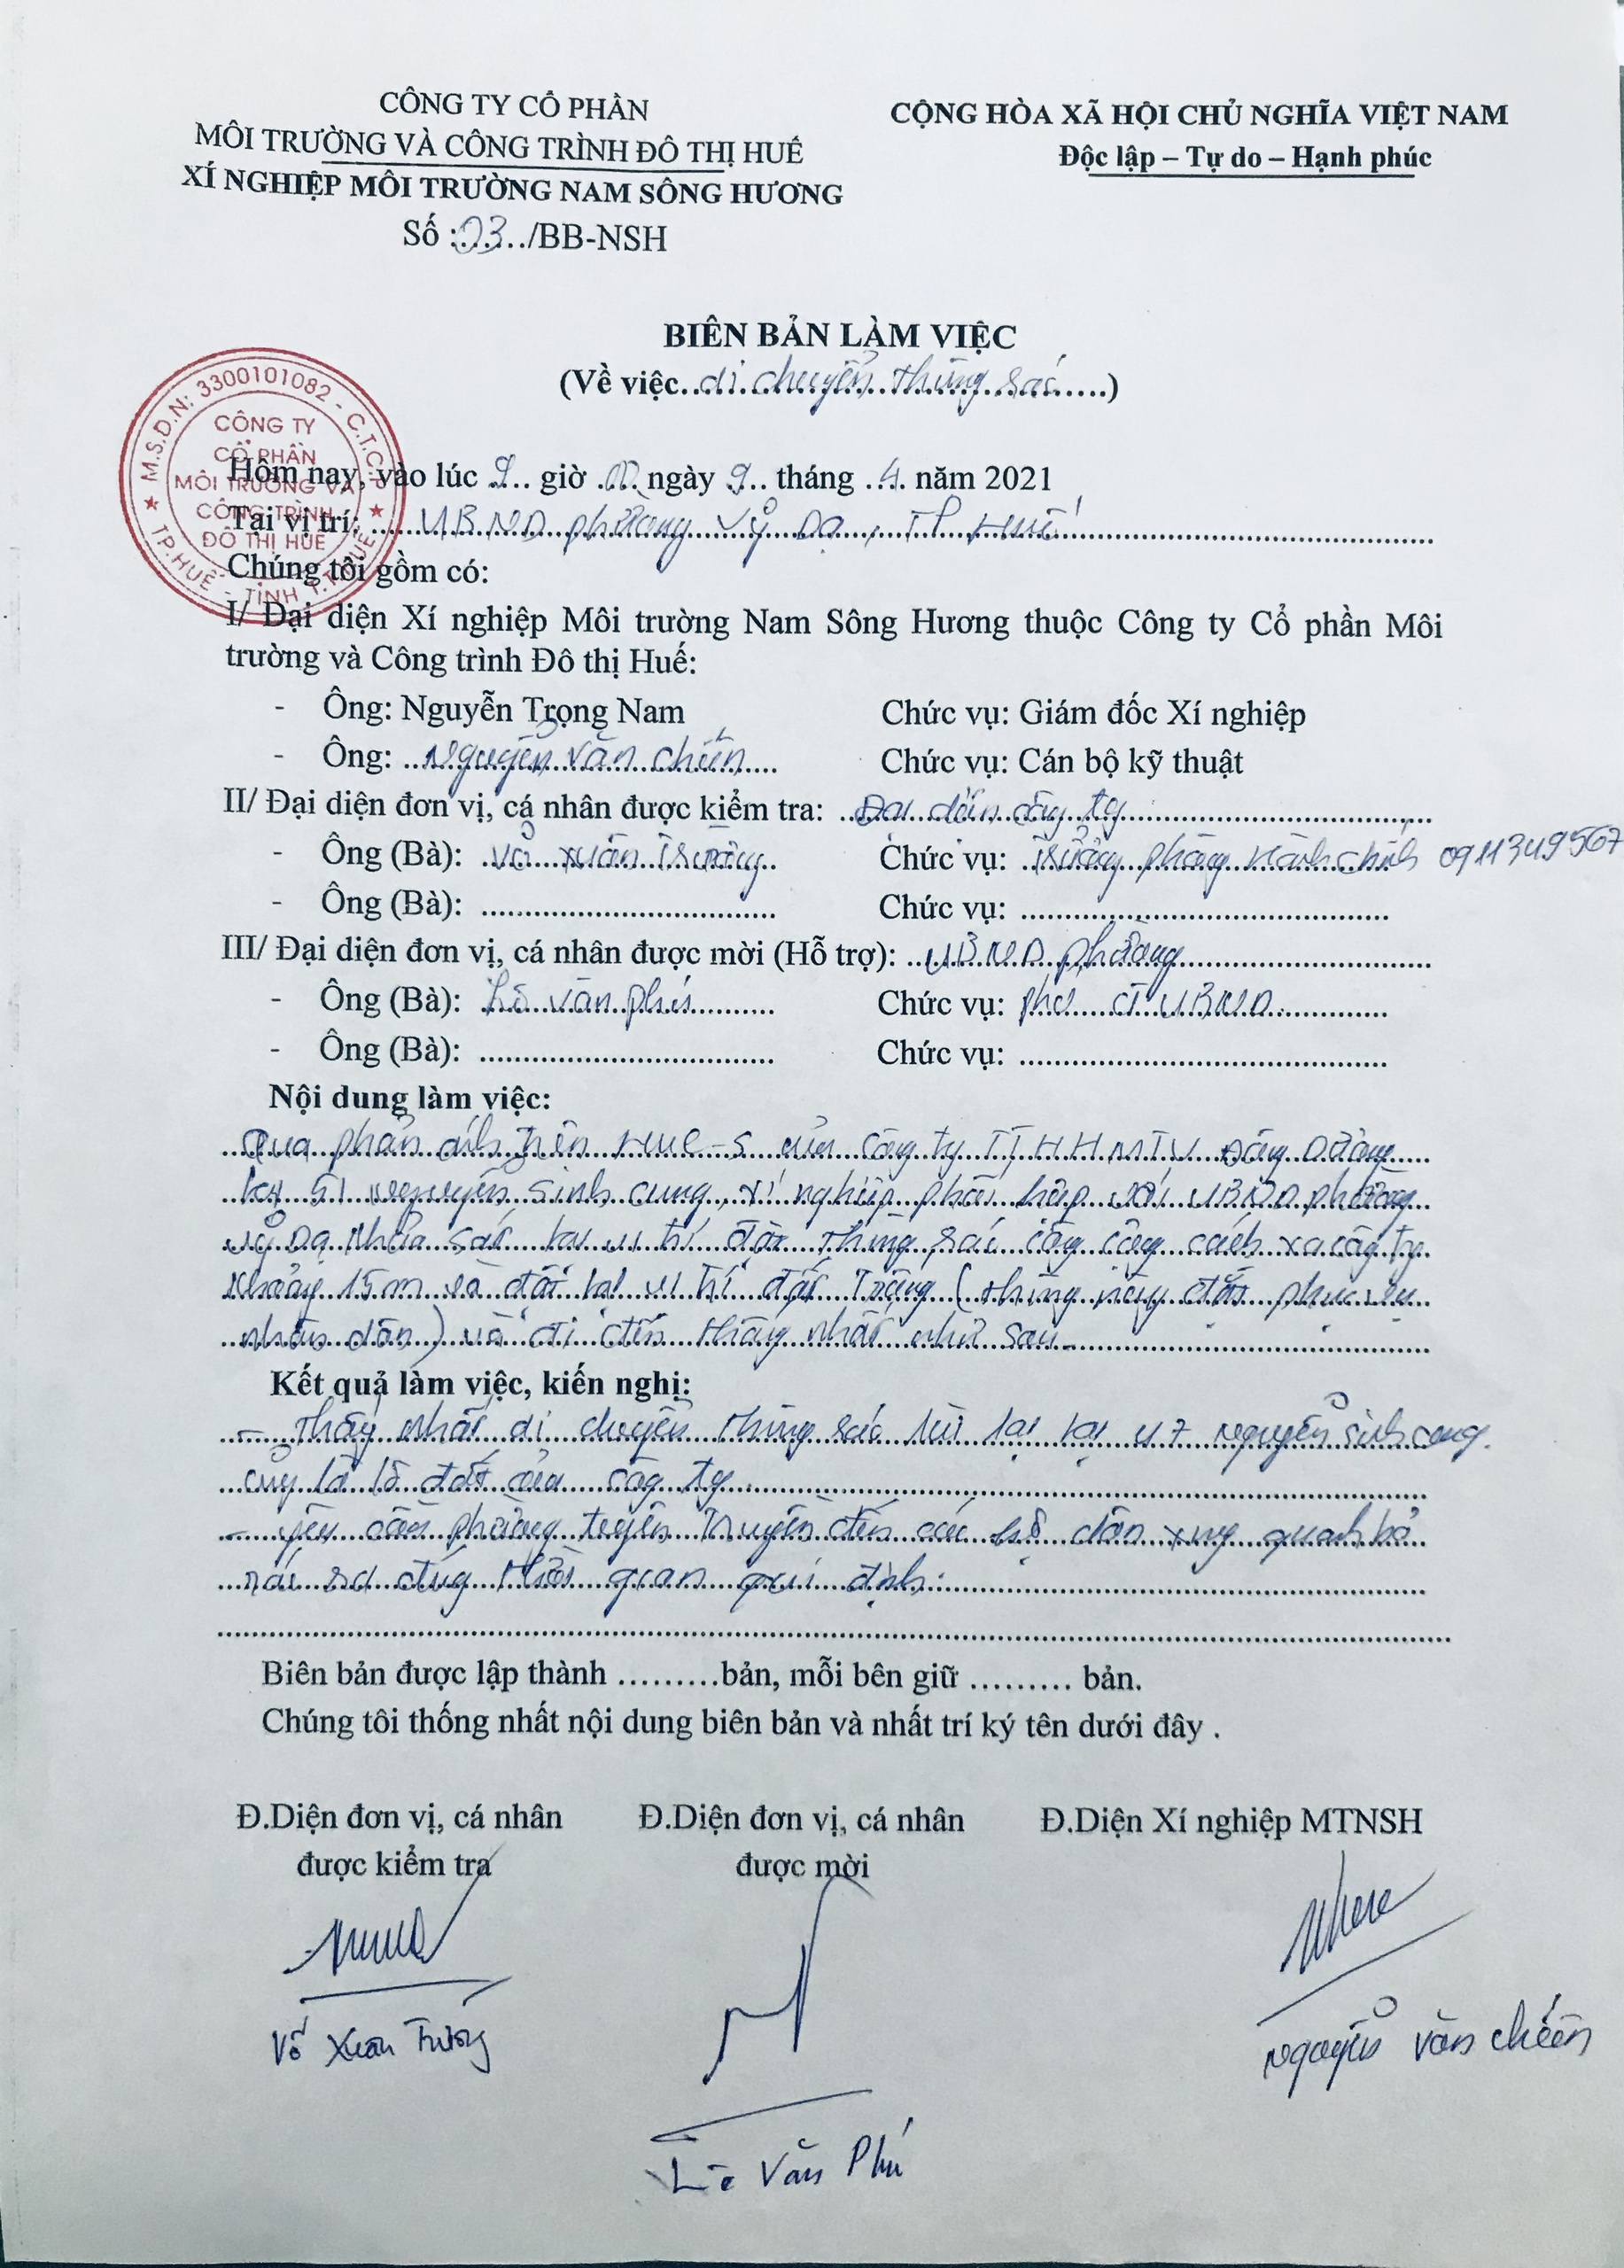 CÔNG TY CỔ PHẦN
MÔI TRƯỜNG VÀ CÔNG TRÌNH ĐÔ THỊ HUẾ
XÍ NGHIỆP MÔI TRƯỜNG NAM SÔNG HƯƠNG
Số :03...../BB-NSH
CỘNG HÒA XÃ HỘI CHỦ NGHĨA VIỆT NAM
Độc lập – Tự do – Hạnh phúc
BIÊN BẢN LÀM VIỆC
(Về việc..di chuyển thùng rác.....)
M.S.D.N: 3300101082 - C.T.C.P
CÔNG TY
CỔ PHẦN
MÔI TRƯỜNG VÀ
CÔNG TRÌNH
ĐÔ THỊ HUẾ
TP.HUẾ - TỈNH T.T.HUẾ
Hôm nay, vào lúc 9.. giờ .00. ngày 9.. tháng ..4. năm 2021
Tại vị trí: ......UBND phường Vỹ Dạ, TP Huế......
Chúng tôi gồm có:
I/ Đại diện Xí nghiệp Môi trường Nam Sông Hương thuộc Công ty Cổ phần Môi
trường và Công trình Đô thị Huế:
- Ông: Nguyễn Trọng Nam Chức vụ: Giám đốc Xí nghiệp
- Ông: ..Nguyễn Văn Chiến.... Chức vụ: Cán bộ kỹ thuật
II/ Đại diện đơn vị, cá nhân được kiểm tra: ..Đại diện công ty......
- Ông (Bà): Võ Xuân Trường.. Chức vụ: Trưởng phòng Hành chính 0911349567
- Ông (Bà): .................................. Chức vụ: ..........................................
III/ Đại diện đơn vị, cá nhân được mời (Hỗ trợ): ..UBND phường......
- Ông (Bà): Lê Văn Phú.......... Chức vụ: phó CT UBND..............
- Ông (Bà): .................................. Chức vụ: ..........................................
Nội dung làm việc:
Qua phản ánh trên Hue-S của công ty TNHH MTV Đông Dương
tại 51 Nguyễn Sinh Cung, xí nghiệp phối hợp với UBND phường
Vỹ Dạ khảo sát tại vị trí đặt thùng rác công cộng cách xa công ty
khoảng 15m và đặt tại vị trí đất trống (thùng này đặt phục vụ
nhân dân) và đi đến thống nhất như sau
Kết quả làm việc, kiến nghị:
- Thống nhất di chuyển thùng rác lùi lại tại 47 Nguyễn Sinh Cung.
cũng là lô đất của công ty
- yêu cầu phường tuyên truyền đến các hộ dân xung quanh bỏ
rác ra đúng thời gian qui định.
Biên bản được lập thành .........bản, mỗi bên giữ ......... bản.
Chúng tôi thống nhất nội dung biên bản và nhất trí ký tên dưới đây .
Đ.Diện đơn vị, cá nhân Đ.Diện đơn vị, cá nhân Đ.Diện Xí nghiệp MTNSH
được kiểm tra được mời
Võ Xuân Trường
Nguyễn Văn Chiến
Lê Văn Phú